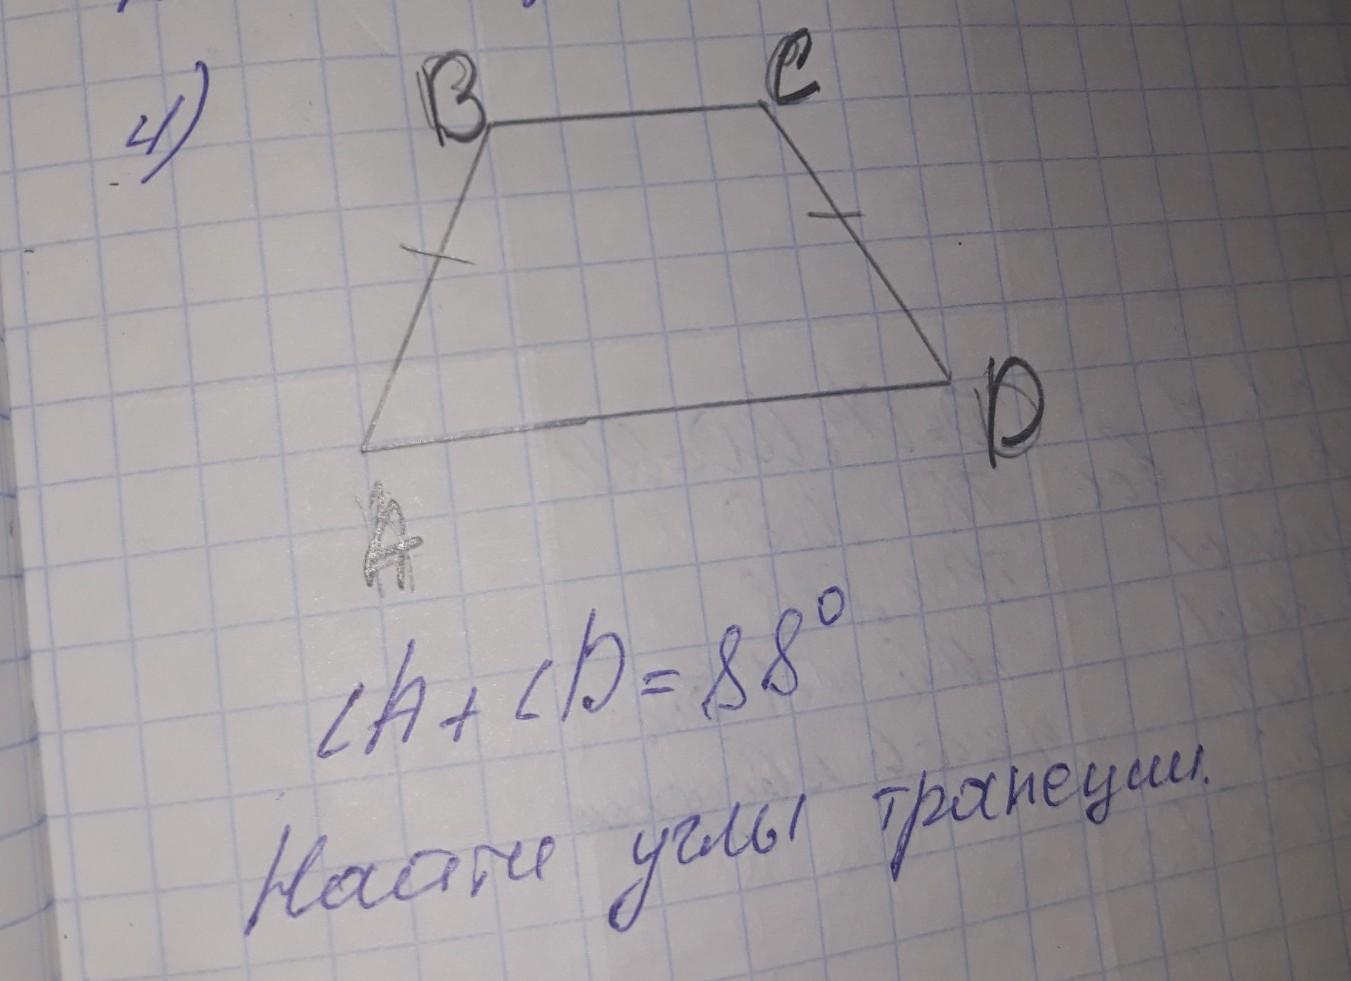 4)
B
C
A
D
∠A + ∠D = 88°
Найти углы трапеции.